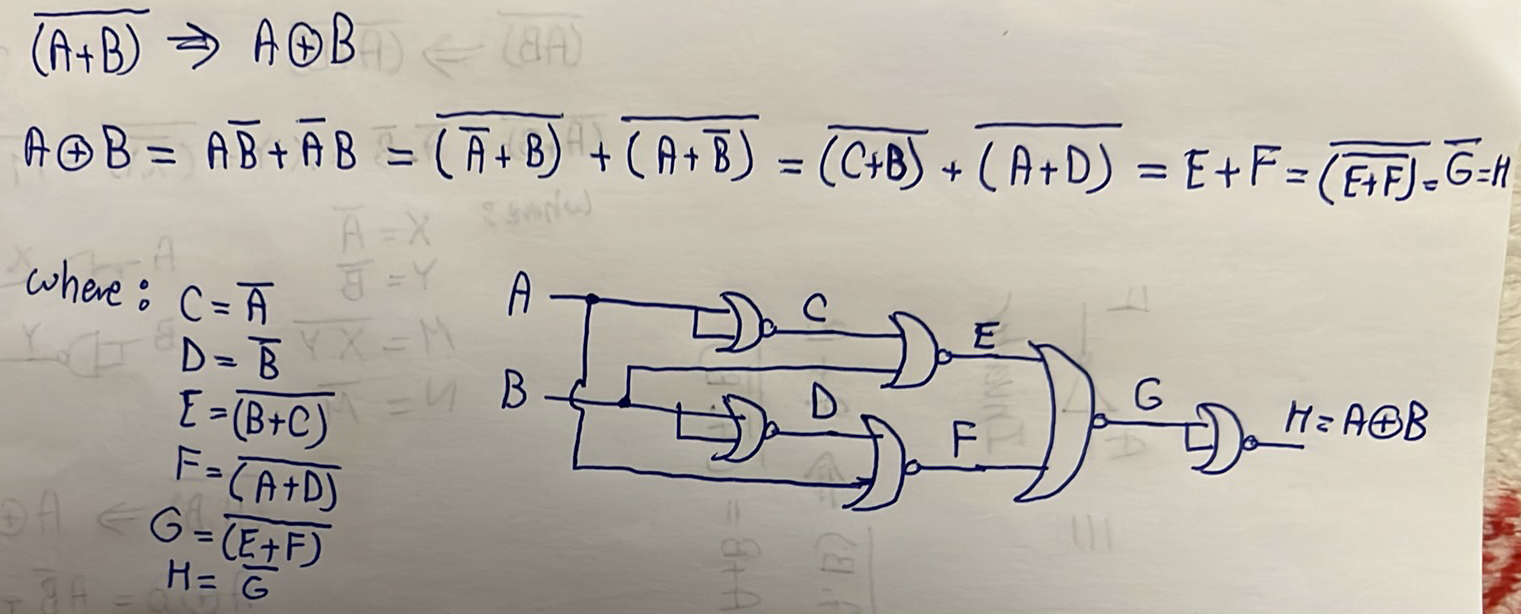 (A+B)̅ ⇒ A⊕B
A⊕B = AB̅ + A̅B = \overline{(A̅+B)} + \overline{(A+B̅)} = \overline{(C+B)} + \overline{(A+D)} = E+F = \overline{\overline{(E+F)}} = G̅ = H
where: C = A̅
D = B̅
E = \overline{(B+C)}
F = \overline{(A+D)}
G = \overline{(E+F)}
H = G̅
A
C
E
B
D
F
G
H = A⊕B